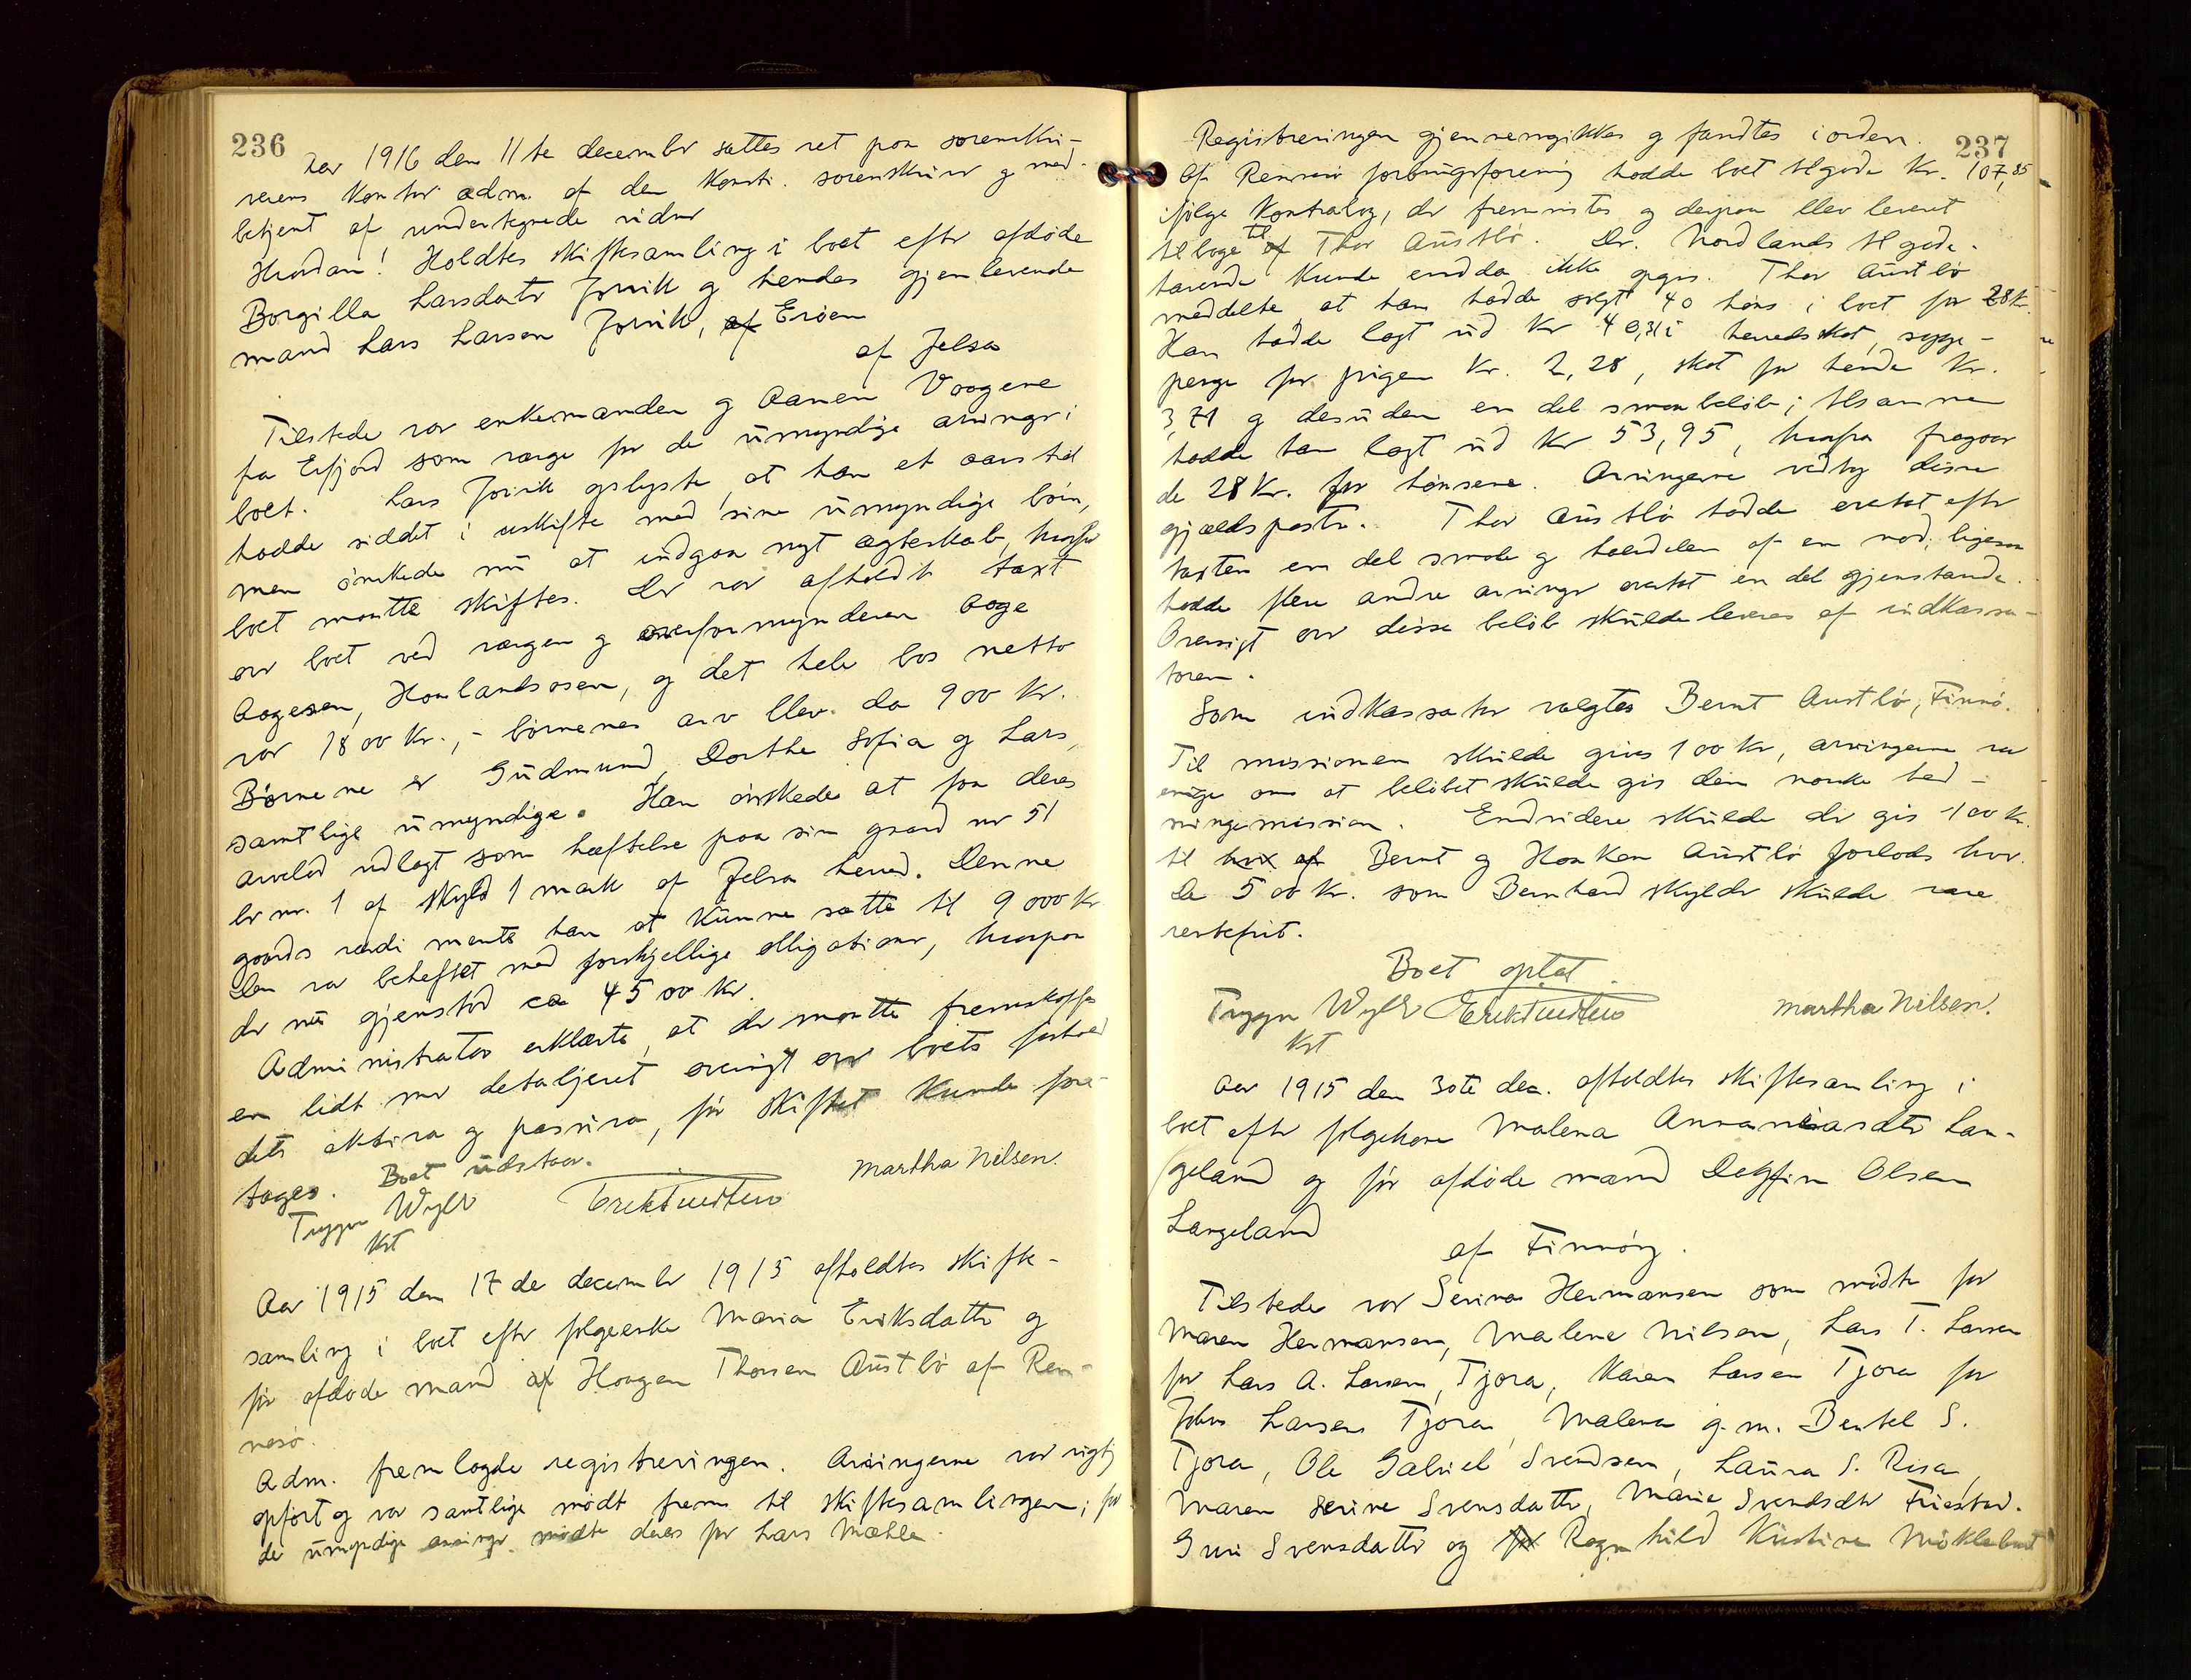 236
Aar 1916 den 11te decembr sattes ret paa sorenskri-
verens kontor adm. af den konst. sorenskriver g med-
betjent af undertegnede vidner
Hvordan! Holdtes skiftesamling i boet eftr afdøde
Borgilla Larsdatr Jorvik g hendes gjenlevende
mand Lars Larsen Jorvik, af Erøen
af Jelsa
Tilstede var enkemanden g Aanen Vaagene
fra Erfjord som værge for de umyndige arvinger i
boet. Lars Jorvik oplyste, at han et aars tid
hadde siddet i uskifte med sine umyndige børn,
men ønskede nu at indgaa nyt ægteskab, hvorfor
boet maatte skiftes. Der var afholdt taxt
ovr boet ved værgen g overformynderen Aage
Aagesen, Haalandsosen, g det hele bos netto
var 1800 Kr., - børnenes arv blev da 900 Kr.
Børnene er Gudmund, Dorthe Sofia g Lars,
samtlige umyndige. Han ønskede at faa deres
arvelod udlagt som hæftelse paa sin gaard nr 51
br nr. 1 af skyld 1 mark af Jelsa herred. Denne
gaards værdi mente han at kunne sætte til 9000 Kr
Den var beheftet med forskjellige obligationer, hvorpaa
der nu gjenstod ca 4500 Kr.
Administrator erklærte, at der maatte fremskaffes
en lidt mer detaljeret oversigt over boets forhold
dets aktiva g passiva, før skiftet kunde fore-
tages. Boet udstaar.
Trygve Wyller Martha Nilsen.
kst
Aar 1915 den 17de decembr 1915 afholdtes skifte-
samling i boet eftr følgeenke Maria Eriksdattr g
før afdøde mand af Haagen Thorsen Austbø af Ren-
nesø.
Adm. fremlagde registreringen. Arvingerne var rigtig
opført g var samtlige mødt frem til skiftesamlingen; for
de umyndige arvinger mødte deres far Lars Mæhle.
237
Registreringen gjennemgikkes g fandtes i orden.
Af Rennesø forbrugsforening hadde boet tilgode Kr. 107,85
ifølge kontrabog, der fremvistes g derpaa blev leveret
tilbage til af Thor Austbø. Dr. Nordlands tilgode-
havende kunde endda ikke opgis. Thor Austbø
meddelte, at han hadde solgt 40 høns i boet for 28 Kr.
Han hadde lagt ud Kr 40,31 i herredskat, syge-
penge for pigen Kr. 2,28, skat for hende Kr.
3,71 g desuden en del smaabeløb; tilsammen
hadde han lagt ud Kr 53,95, hvorfra fragaar
de 28 Kr. for hønsene. Arvingerne vedtog disse
gjældsposter. Thor Austbø hadde overtat eftr
taxten en del smale g halvdelen af en nod; ligesaa
hadde flere andre arvinger overtat en del gjenstande.
Oversigt over disse beløb skulde leveres af indkassa-
toren.
Som indkassator valgtes Bernt Austbø, Finnø.
Til missionen skulde gives 100 Kr, arvingerne var
enige om at beløbet skulde gis den norske hed-
ningemission. Endvidere skulde der gis 100 Kr.
til hvr af Bernt g Haaken Austbø forlods hver.
De 500 Kr. som Bernhard skylder skulde være
rentefrit.
Boet optat.
Trygve Wyller Martha Nilsen.
kst
Aar 1915 den 30te dec. afholdtes skiftesamling i
boet eftr følgekone Malena Annaniasdtr Lan-
geland g før afdøde mand Dagfin Olsen
Langeland
af Finnøy.
Tilstede var Serina Hermansen som mødte for
Maren Hermansen, Malene Nilsen, Lars T. Larsen
for Lars A. Larsen, Tjora, Karen Larsen Tjora for
Johs Larsen Tjora, Malena g.m. Bertel S.
Tjora, Ole Gabriel Svendsen, Laura S. Risa,
Maren Serine Svensdattr, Marie Svendsdtr Friestad.
Guri Svensdattr og for Ragnhild Kristine Møklebust